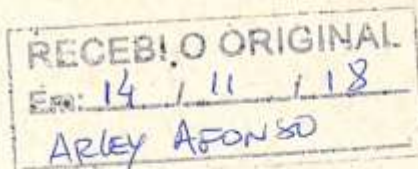 RECEBI O ORIGINAL
Em: 14 / 11 / 18
ARLEY AFONSO